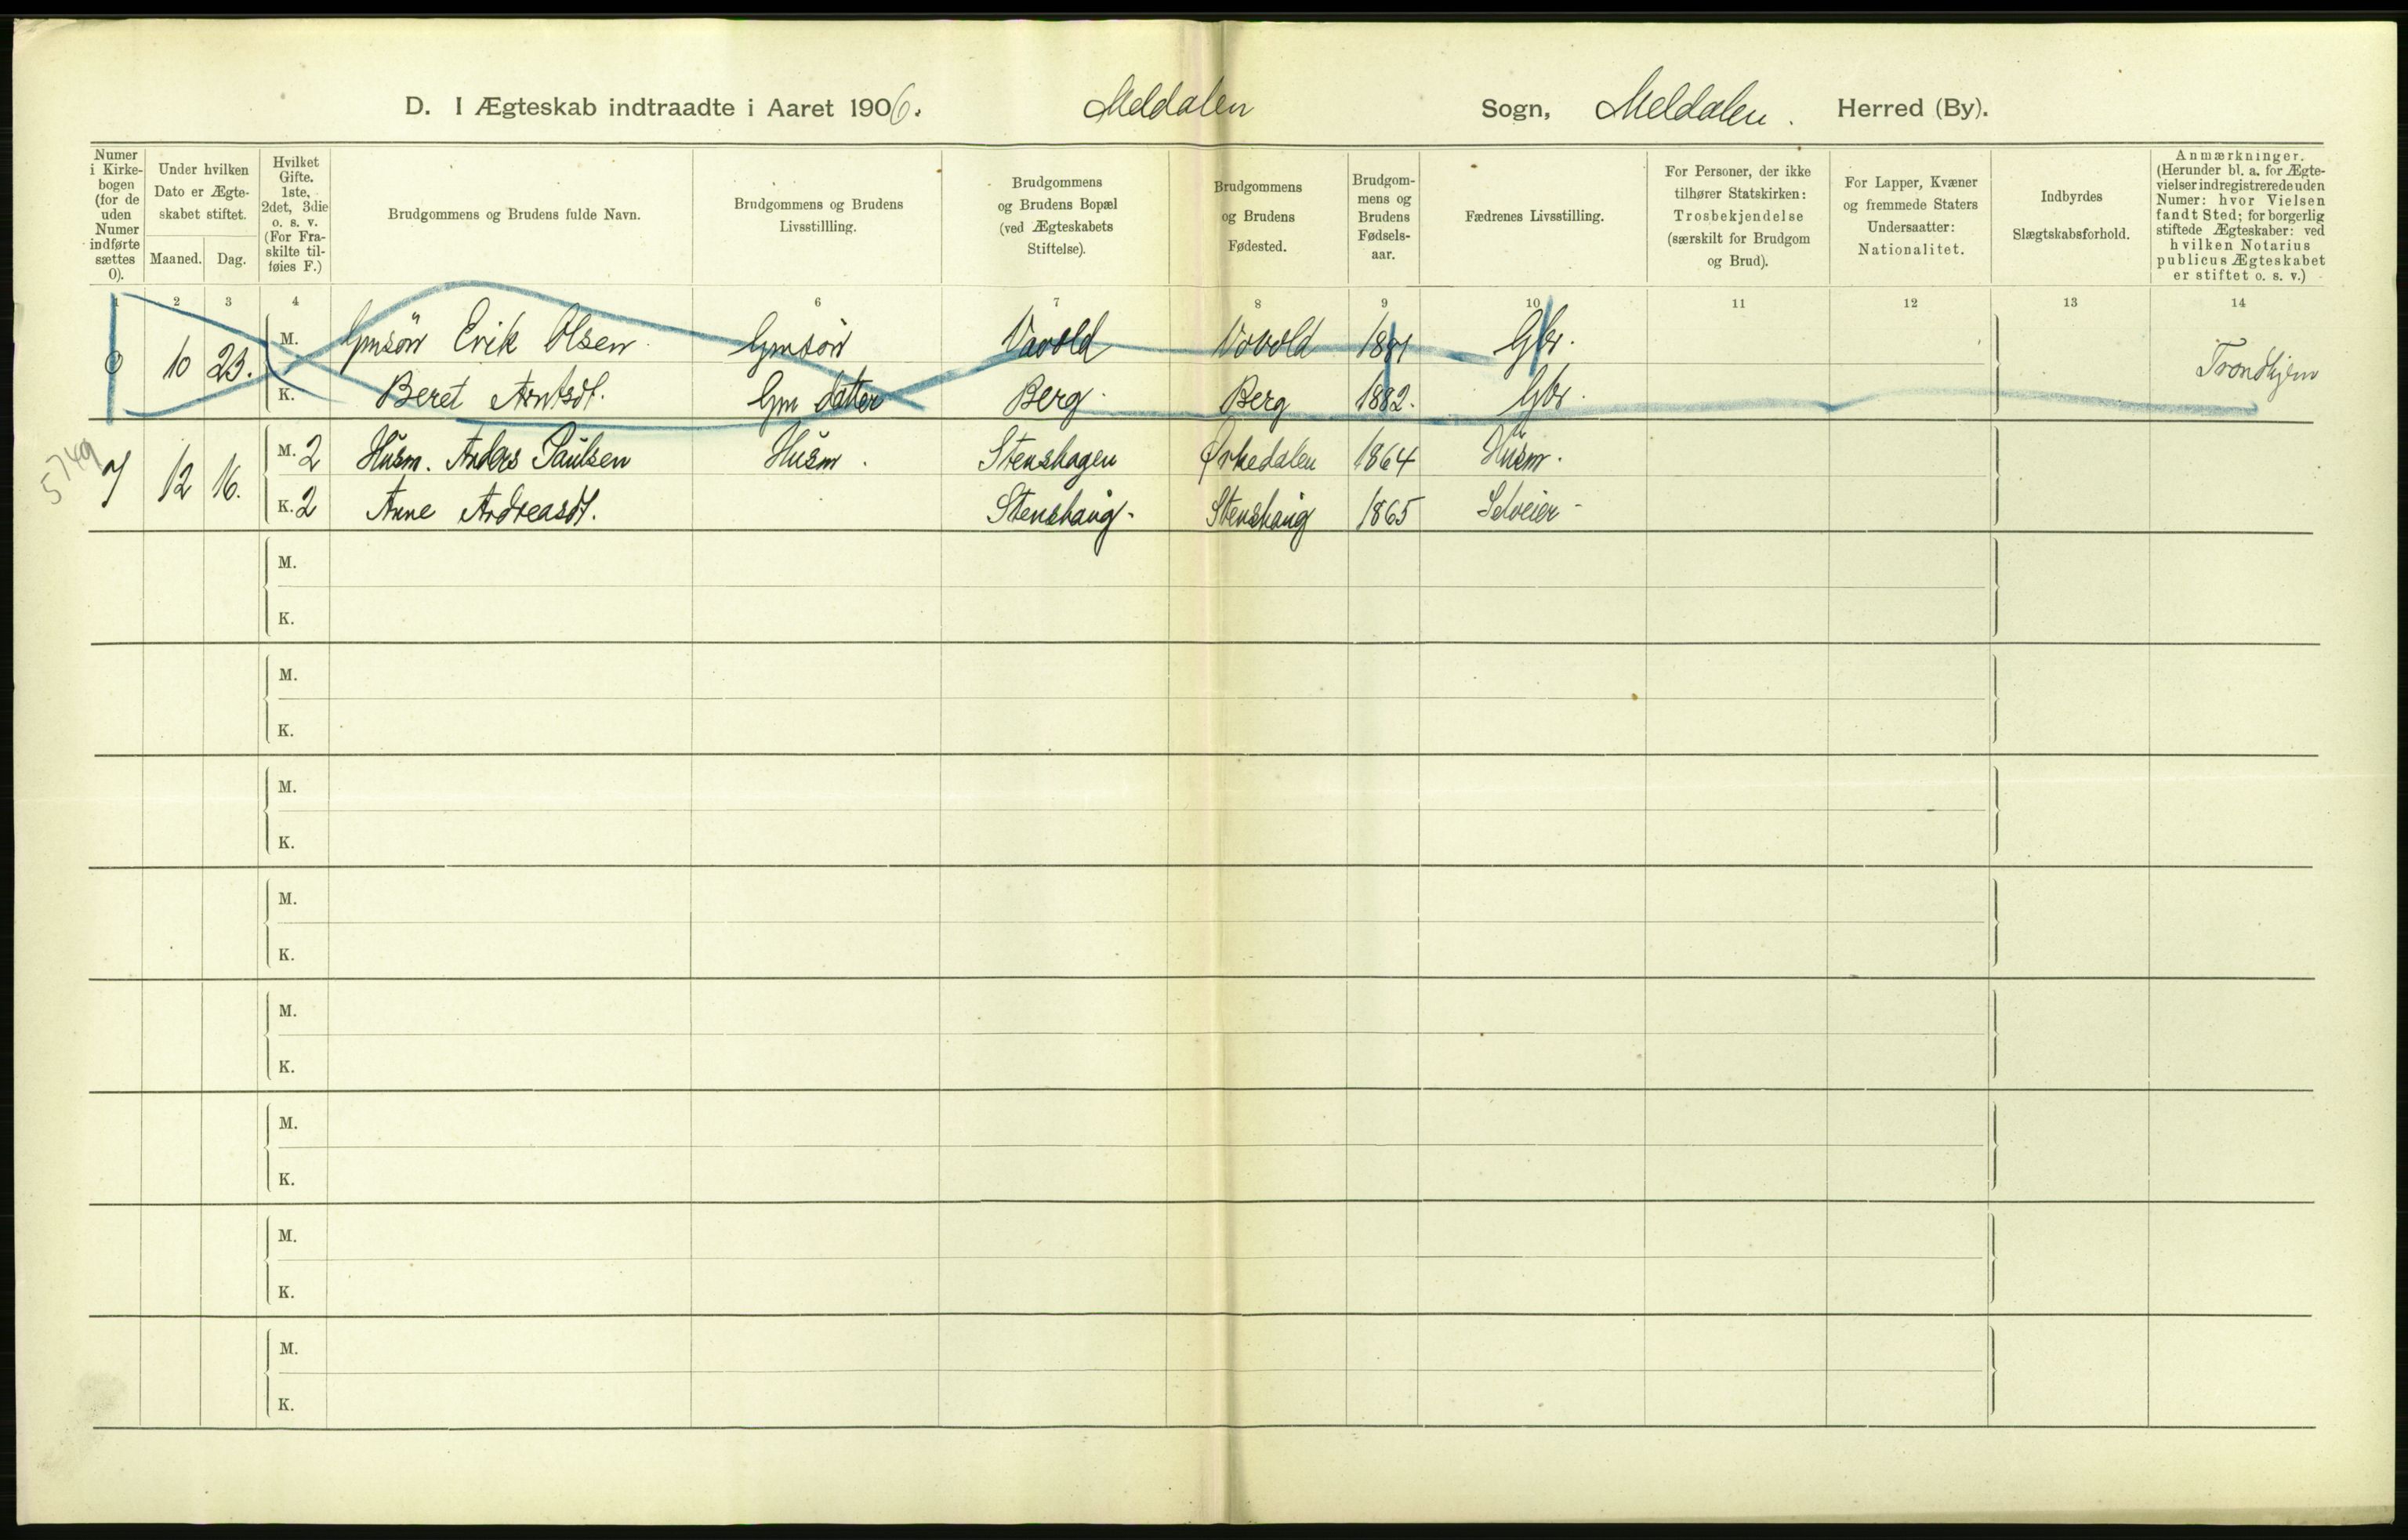 D. I Ægteskab indtraadte i Aaret 1906. Meldalen Sogn, Meldalen. Herred (By).
Numer i Kirkebogen (for de uden Numer indførte sættes 0).
Under hvilken Dato er Ægteskabet stiftet.
Maaned. Dag.
Hvilket Gifte. 1ste, 2det, 3die o. s. v. (For Fraskilte tilføies F.)
Brudgommens og Brudens fulde Navn.
Brudgommens og Brudens Livsstillling.
Brudgommens og Brudens Bopæl (ved Ægteskabets Stiftelse).
Brudgommens og Brudens Fødested.
Brudgommens og Brudens Fødselsaar.
Fædrenes Livsstilling.
For Personer, der ikke tilhører Statskirken: Trosbekjendelse (særskilt for Brudgom og Brud).
For Lapper, Kvæner og fremmede Staters Undersaatter: Nationalitet.
Indbyrdes Slægtskabsforhold.
Anmærkninger. (Herunder bl. a. for Ægtevielser indregistrerede uden Numer: hvor Vielsen fandt Sted; for borgerlig stiftede Ægteskaber: ved hvilken Notarius publicus Ægteskabet er stiftet o. s. v.)
1 2 3 4 6 7 8 9 10 11 12 13 14
0 10 23. M. Gmsön Erik Olsen. Gmsön 1881 Gbr. Trondhjem
K. Beret Arntsdt. Gm datter Berg. Berg 1882. Gbr.
5749 7 12 16. M. 2 Husm. Anders Paulsen Husm. Stenshagen Ørkedalen 1864 Husm.
K. 2 Anne Andreasdt. Stenshaug. Stenshaug 1865 Selveier
M.
K.
M.
K.
M.
K.
M.
K.
M.
K.
M.
K.
M.
K.
M.
K.